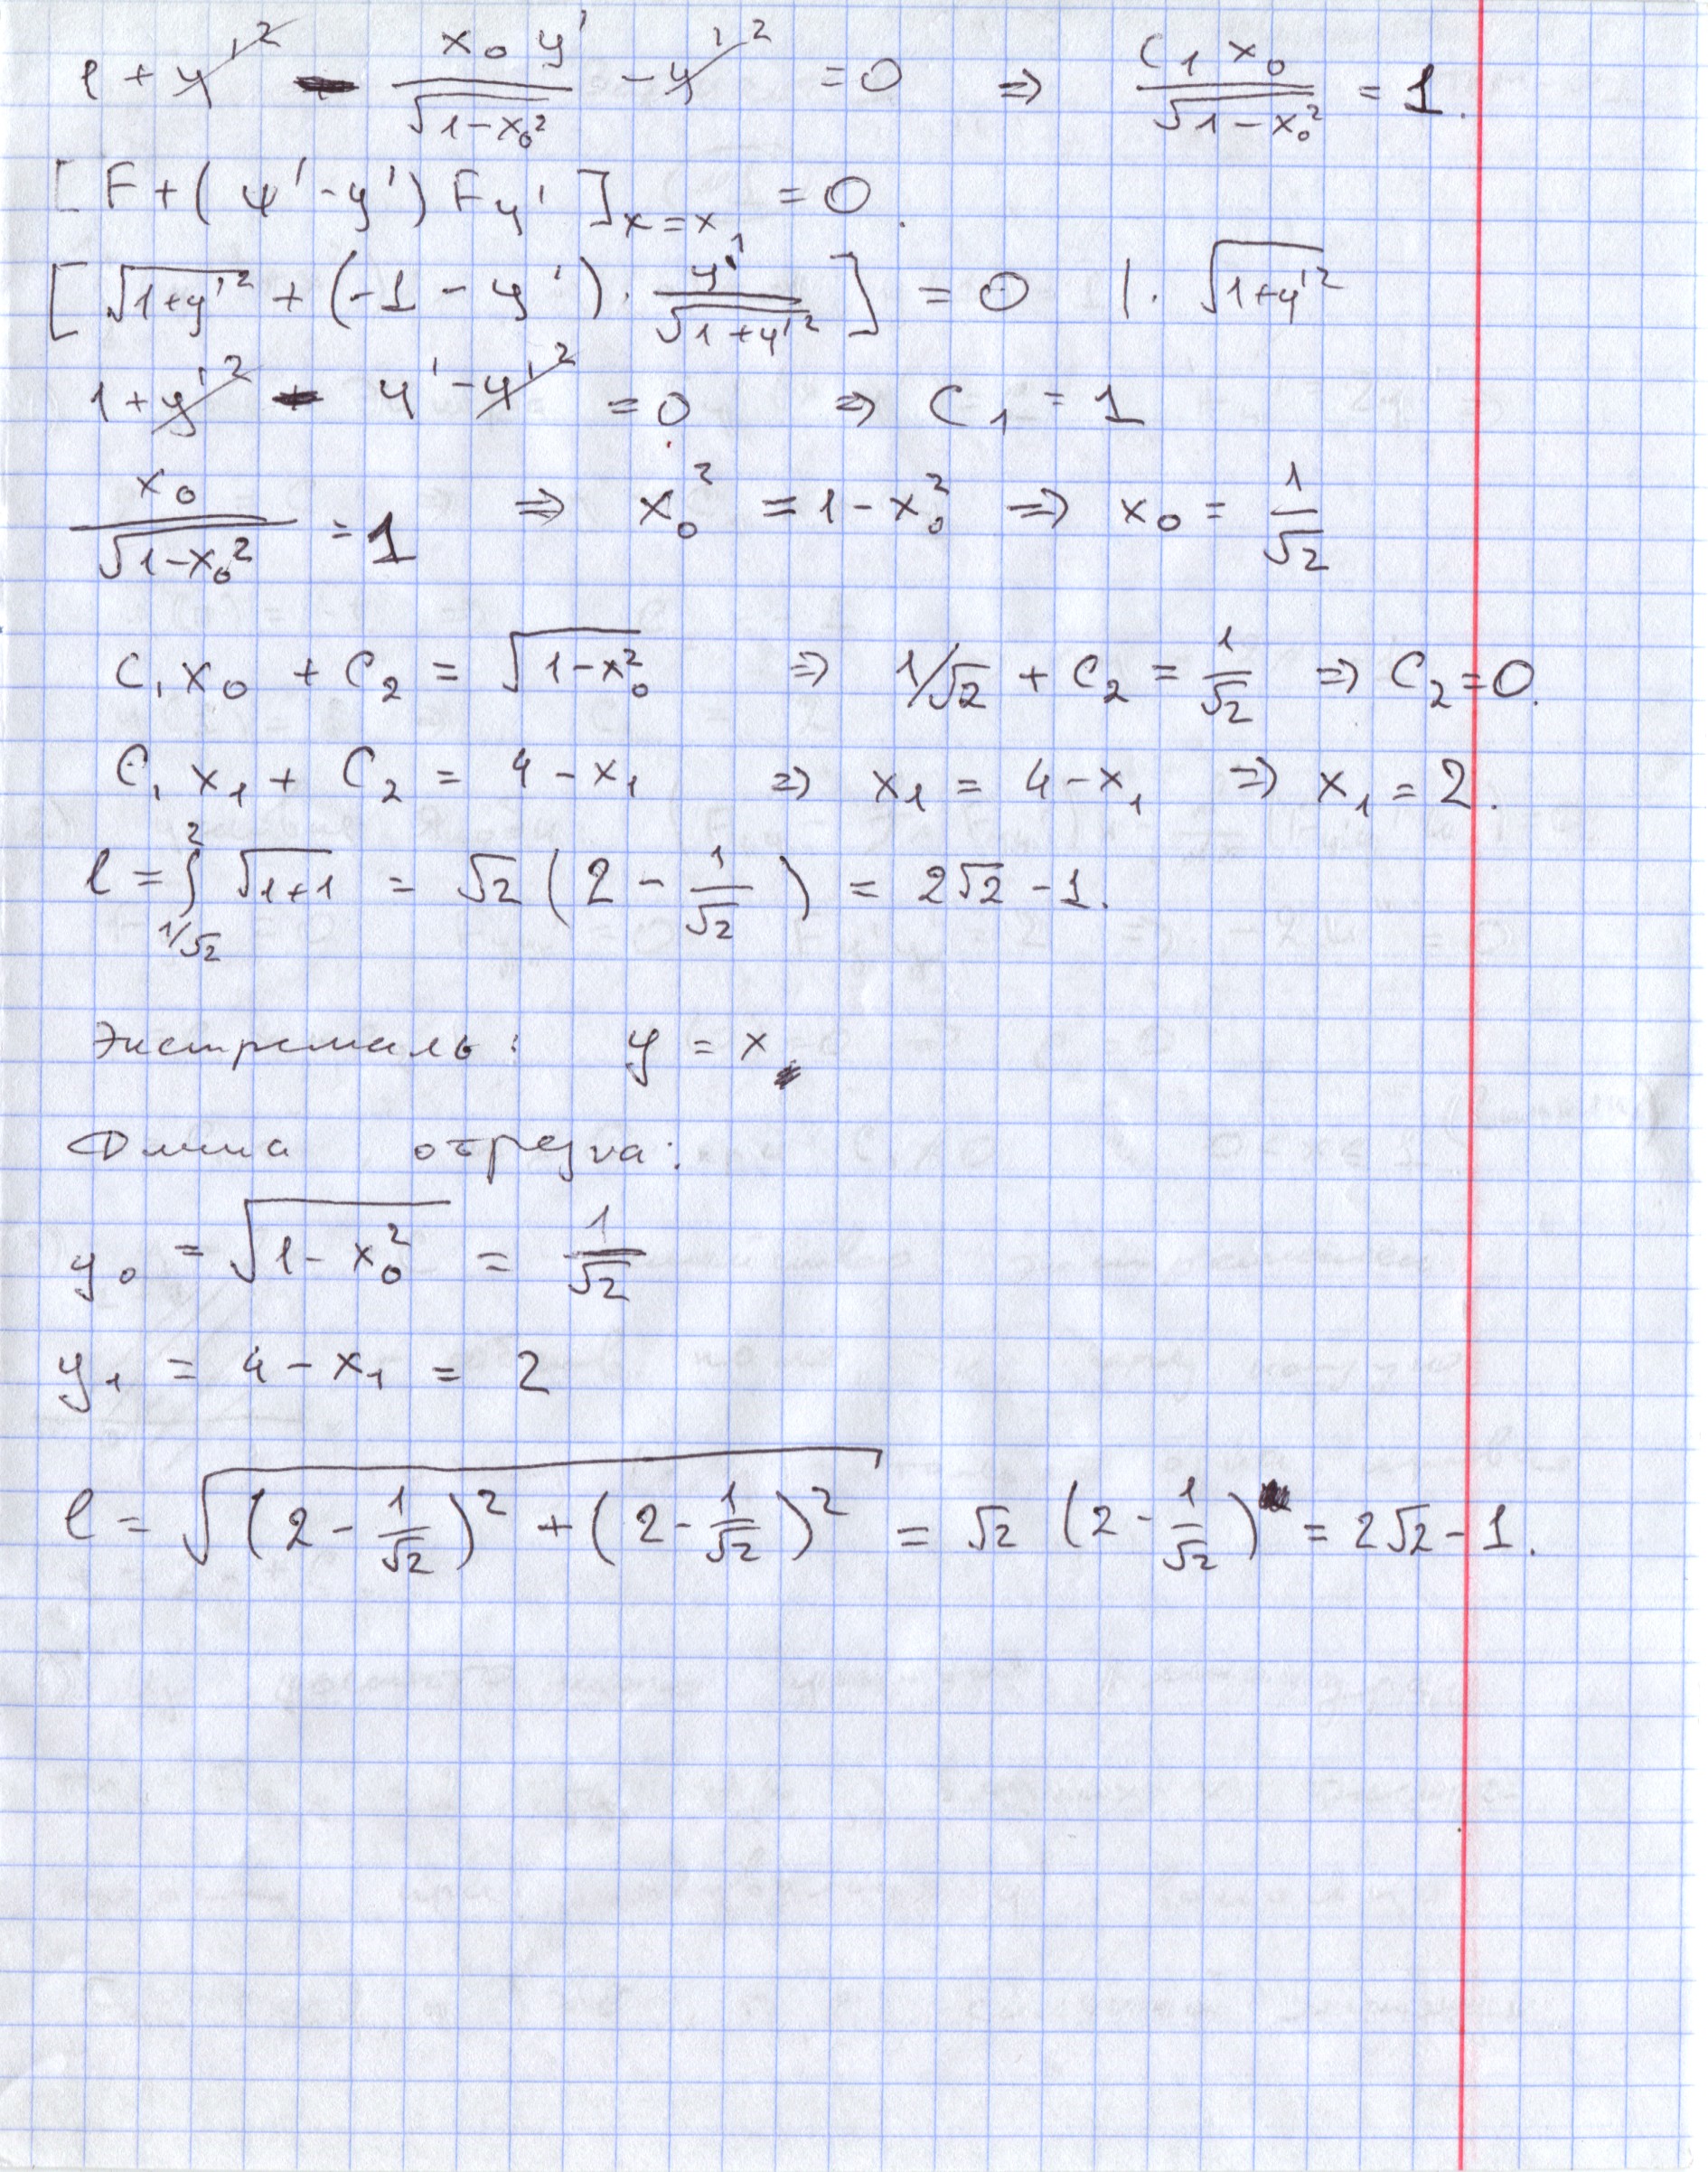 1 + y'² - x₀y'/√(1-x₀²) - y'² = 0 ⇒ C₁x₀/√(1-x₀²) = 1.
[F + (ψ' - y') Fy']x=x₁ = 0.
[√(1+y'²) + (-1 - y') · y'/√(1+y'²)] = 0 | · √(1+y'²)
1 + y'² - y' - y'² = 0 ⇒ C₁ = 1
x₀/√(1-x₀²) = 1 ⇒ x₀² = 1 - x₀² ⇒ x₀ = 1/√2
C₁x₀ + C₂ = √(1-x₀²) ⇒ 1/√2 + C₂ = 1/√2 ⇒ C₂ = 0.
C₁x₁ + C₂ = 4 - x₁ ⇒ x₁ = 4 - x₁ ⇒ x₁ = 2.
l = ∫_{1/√2}^{2} √(1+1) = √2 (2 - 1/√2) = 2√2 - 1.
Экстремаль: y = x
Длина отрезка:
y₀ = √(1 - x₀²) = 1/√2
y₁ = 4 - x₁ = 2
l = √((2 - 1/√2)² + (2 - 1/√2)²) = √2 (2 - 1/√2) = 2√2 - 1.